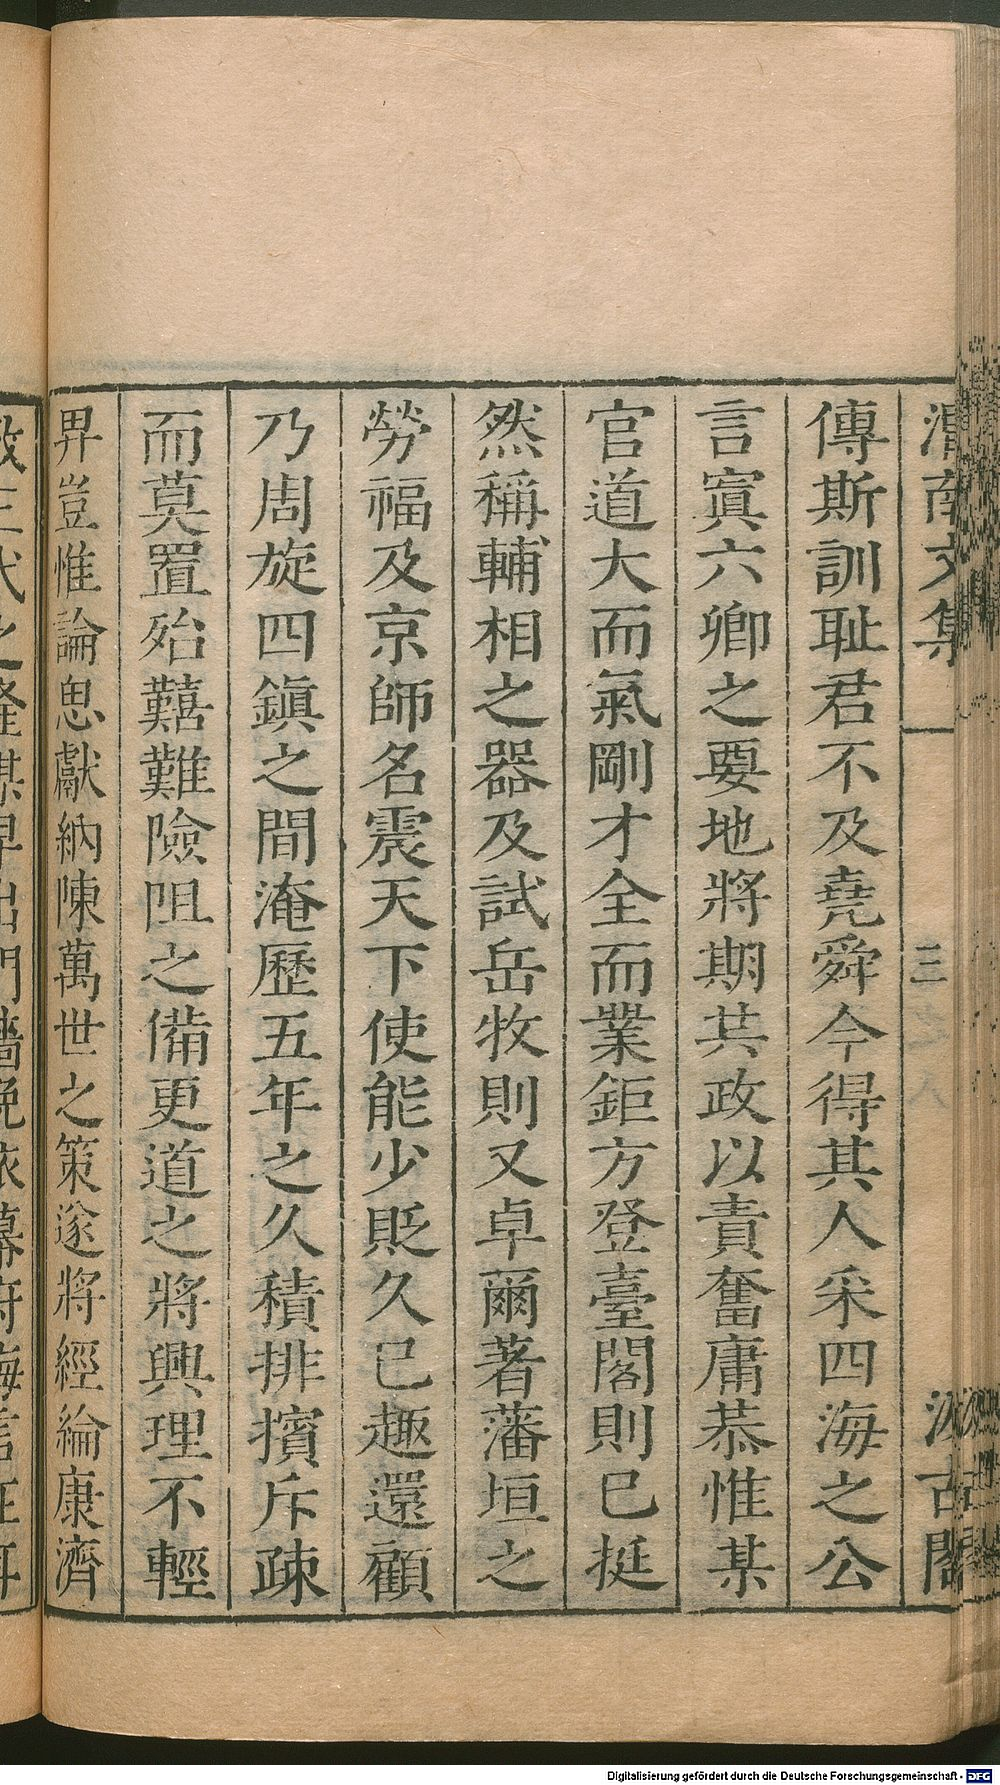 渭南文集 三 汲古閣
傳斯訓耻君不及堯舜今得其人采四海之公
言寘六卿之要地將期共政以責奮庸恭惟某
官道大而氣剛才全而業鉅方登臺閣則已挺
然稱輔相之器及試岳牧則又卓爾著藩垣之
勞福及京師名震天下使能少貶久已趣還顧
乃周旋四鎮之間淹歷五年之久積排擯斥疎
而莫置殆囏難險阻之備更道之將興理不輕
畀豈惟論思獻納陳萬世之策遂將經綸康濟
Digitalisierung gefördert durch die Deutsche Forschungsgemeinschaft - DFG